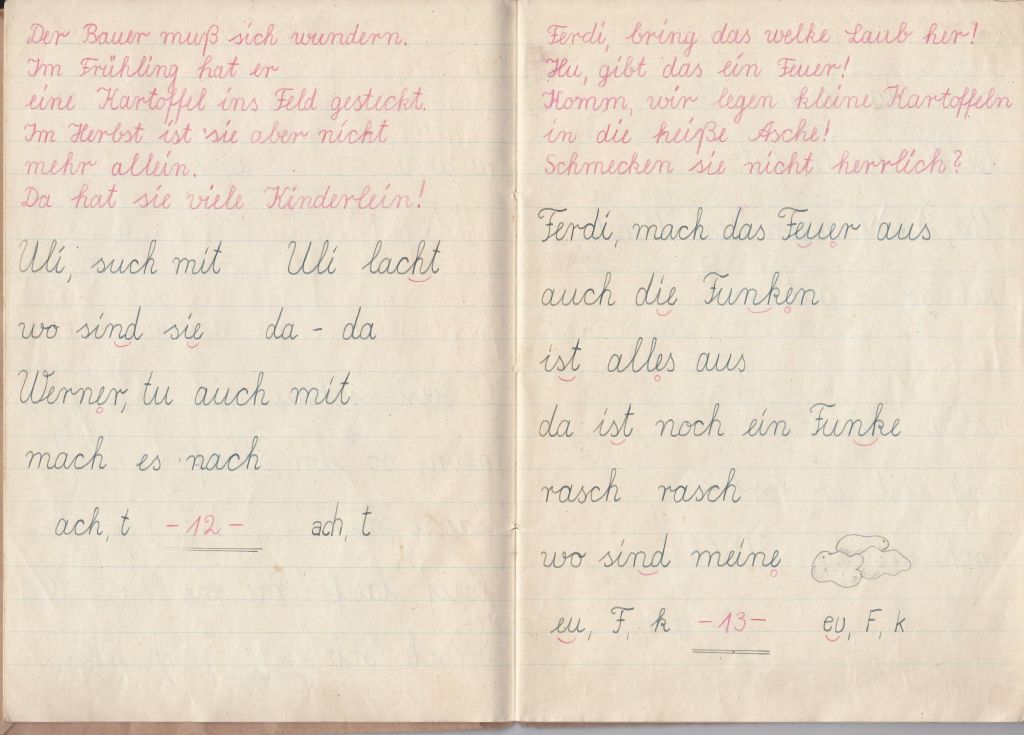 Der Bauer muß sich wundern.
Im Frühling hat er
eine Kartoffel ins Feld gesteckt.
Im Herbst ist sie aber nicht
mehr allein.
Da hat sie viele Kinderlein!
Uli, such mit Uli lacht
wo sind sie da - da
Werner, tu auch mit
mach es nach
ach, t - 12 - ach, t
Ferdi, bring das welke Laub her!
Hu, gibt das ein Feuer!
Komm, wir legen kleine Kartoffeln
in die heiße Asche!
Schmecken sie nicht herrlich?
Ferdi, mach das Feuer aus
auch die Funken
ist alles aus
da ist noch ein Funke
rasch rasch
wo sind meine
eu, F, k - 13 - eu, F, k